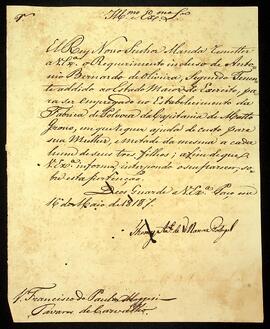 Illmo. e Exmo. Snr.
El Rey Nosso Senhor Manda remetter
a V. Exa. o Requerimento incluso de Anto-
nio Bernardo de Oliveira, Segundo Tenen-
te addido ao Estado Maior do Exercito, pa-
ra ser empregado no Estabelecimento da
Fabrica de Polvora da Capitania de Matto
Grosso, em que requer ajuda de custo para
sua Mulher, e metade da mesma a cada
hum de seus tres filhos; a fim de que
V. Exa. informe interpondo o seu parecer, so-
bre esta pertenção.
Deos Guarde a V. Exa. Paço em
16 de Maio de 1817.
Thomaz Anto. de Villanova Portugal
Sr. Francisco de Paula
Tavares de Carvalho